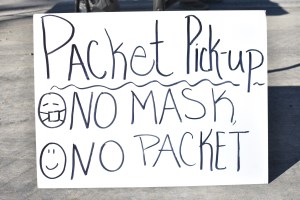 Packet Pick-up
NO MASK,
NO PACKET